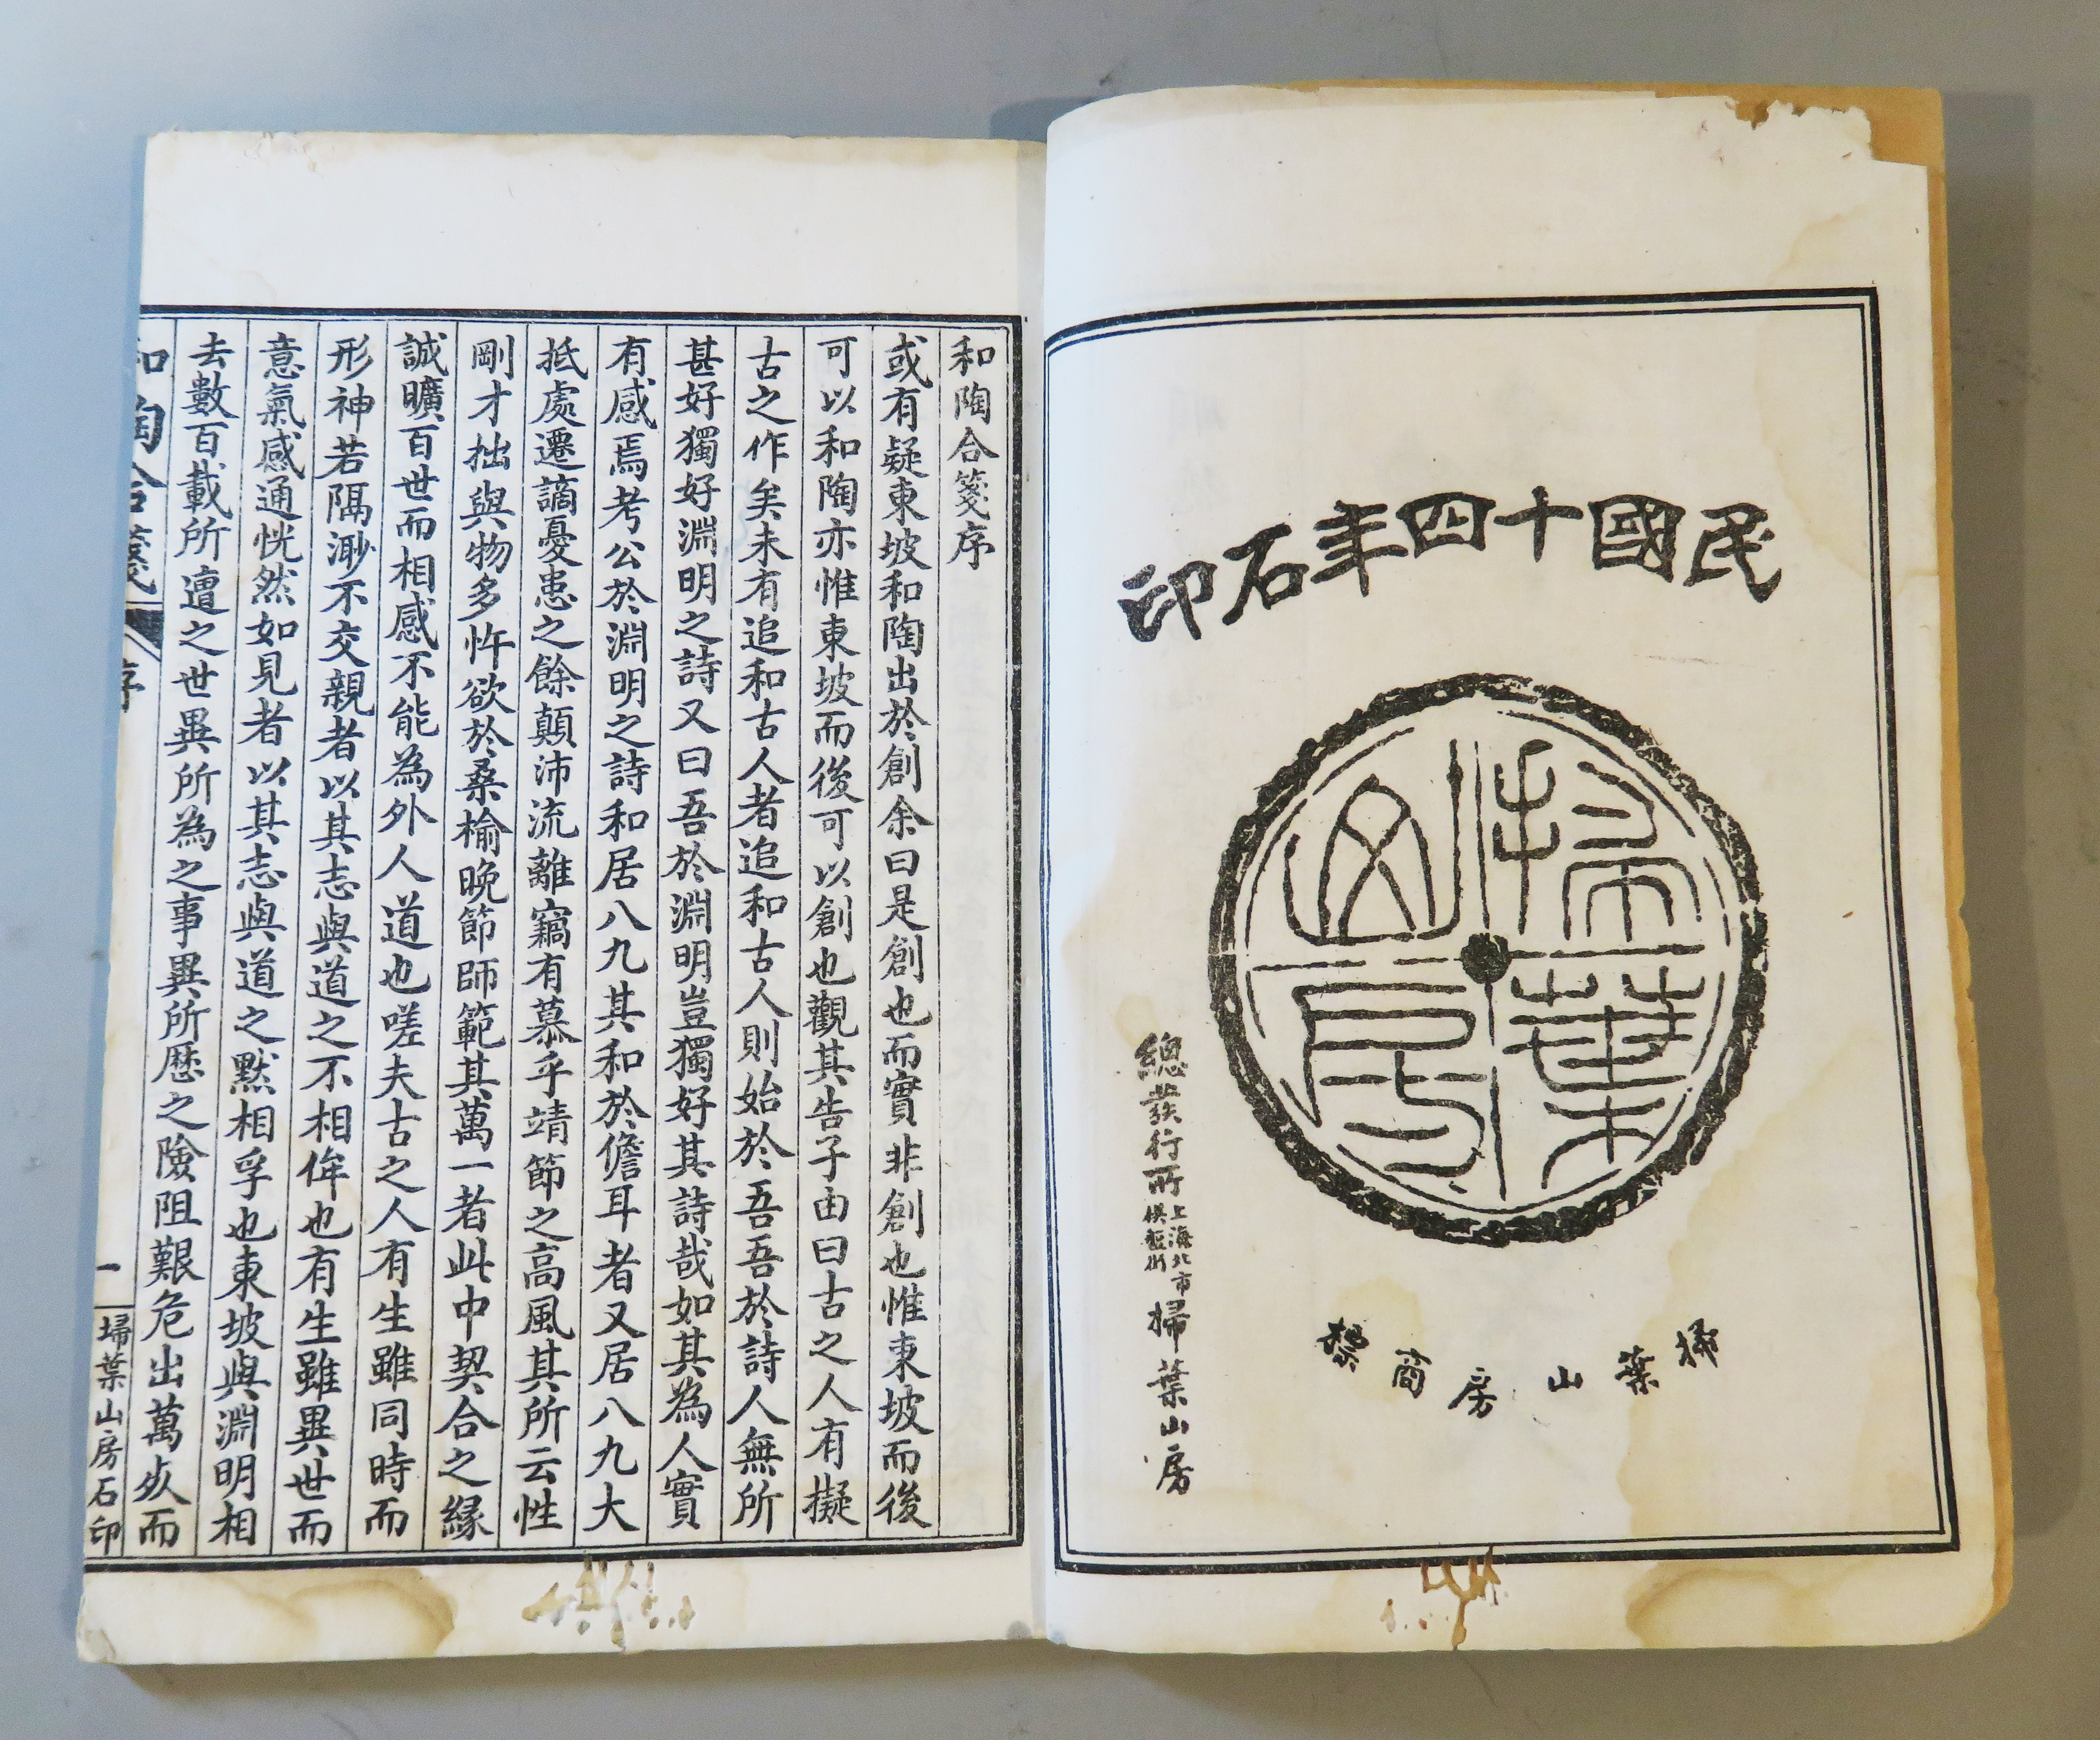 民國十四年石印
掃葉山房
掃葉山房商標
總發行所
上海北市
棋盤街
掃葉山房
和陶合箋序
或有疑東坡和陶出於創余曰是創也而實非創也惟東坡而後
可以和陶亦惟東坡而後可以創也觀其告子由曰古之人有擬
古之作矣未有追和古人者追和古人則始於吾吾於詩人無所
甚好獨好淵明之詩又曰吾於淵明豈獨好其詩哉如其為人實
有感焉考公於淵明之詩和居八九其和於儋耳者又居八九大
抵處遷謫憂患之餘顛沛流離竊有慕乎靖節之高風其所云性
剛才拙與物多忤欲於桑榆晚節師範其萬一者此中契合之緣
誠曠百世而相感不能為外人道也嗟夫古之人有生雖同時而
形神若隔漠不交親者以其志與道之不相侔也有生雖異世而
意氣感通恍然如見者以其志與道之默相孚也東坡與淵明相
去數百載所遭之世異所為之事異所歷之險阻艱危出萬死而
和陶合箋
序
一
掃葉山房石印